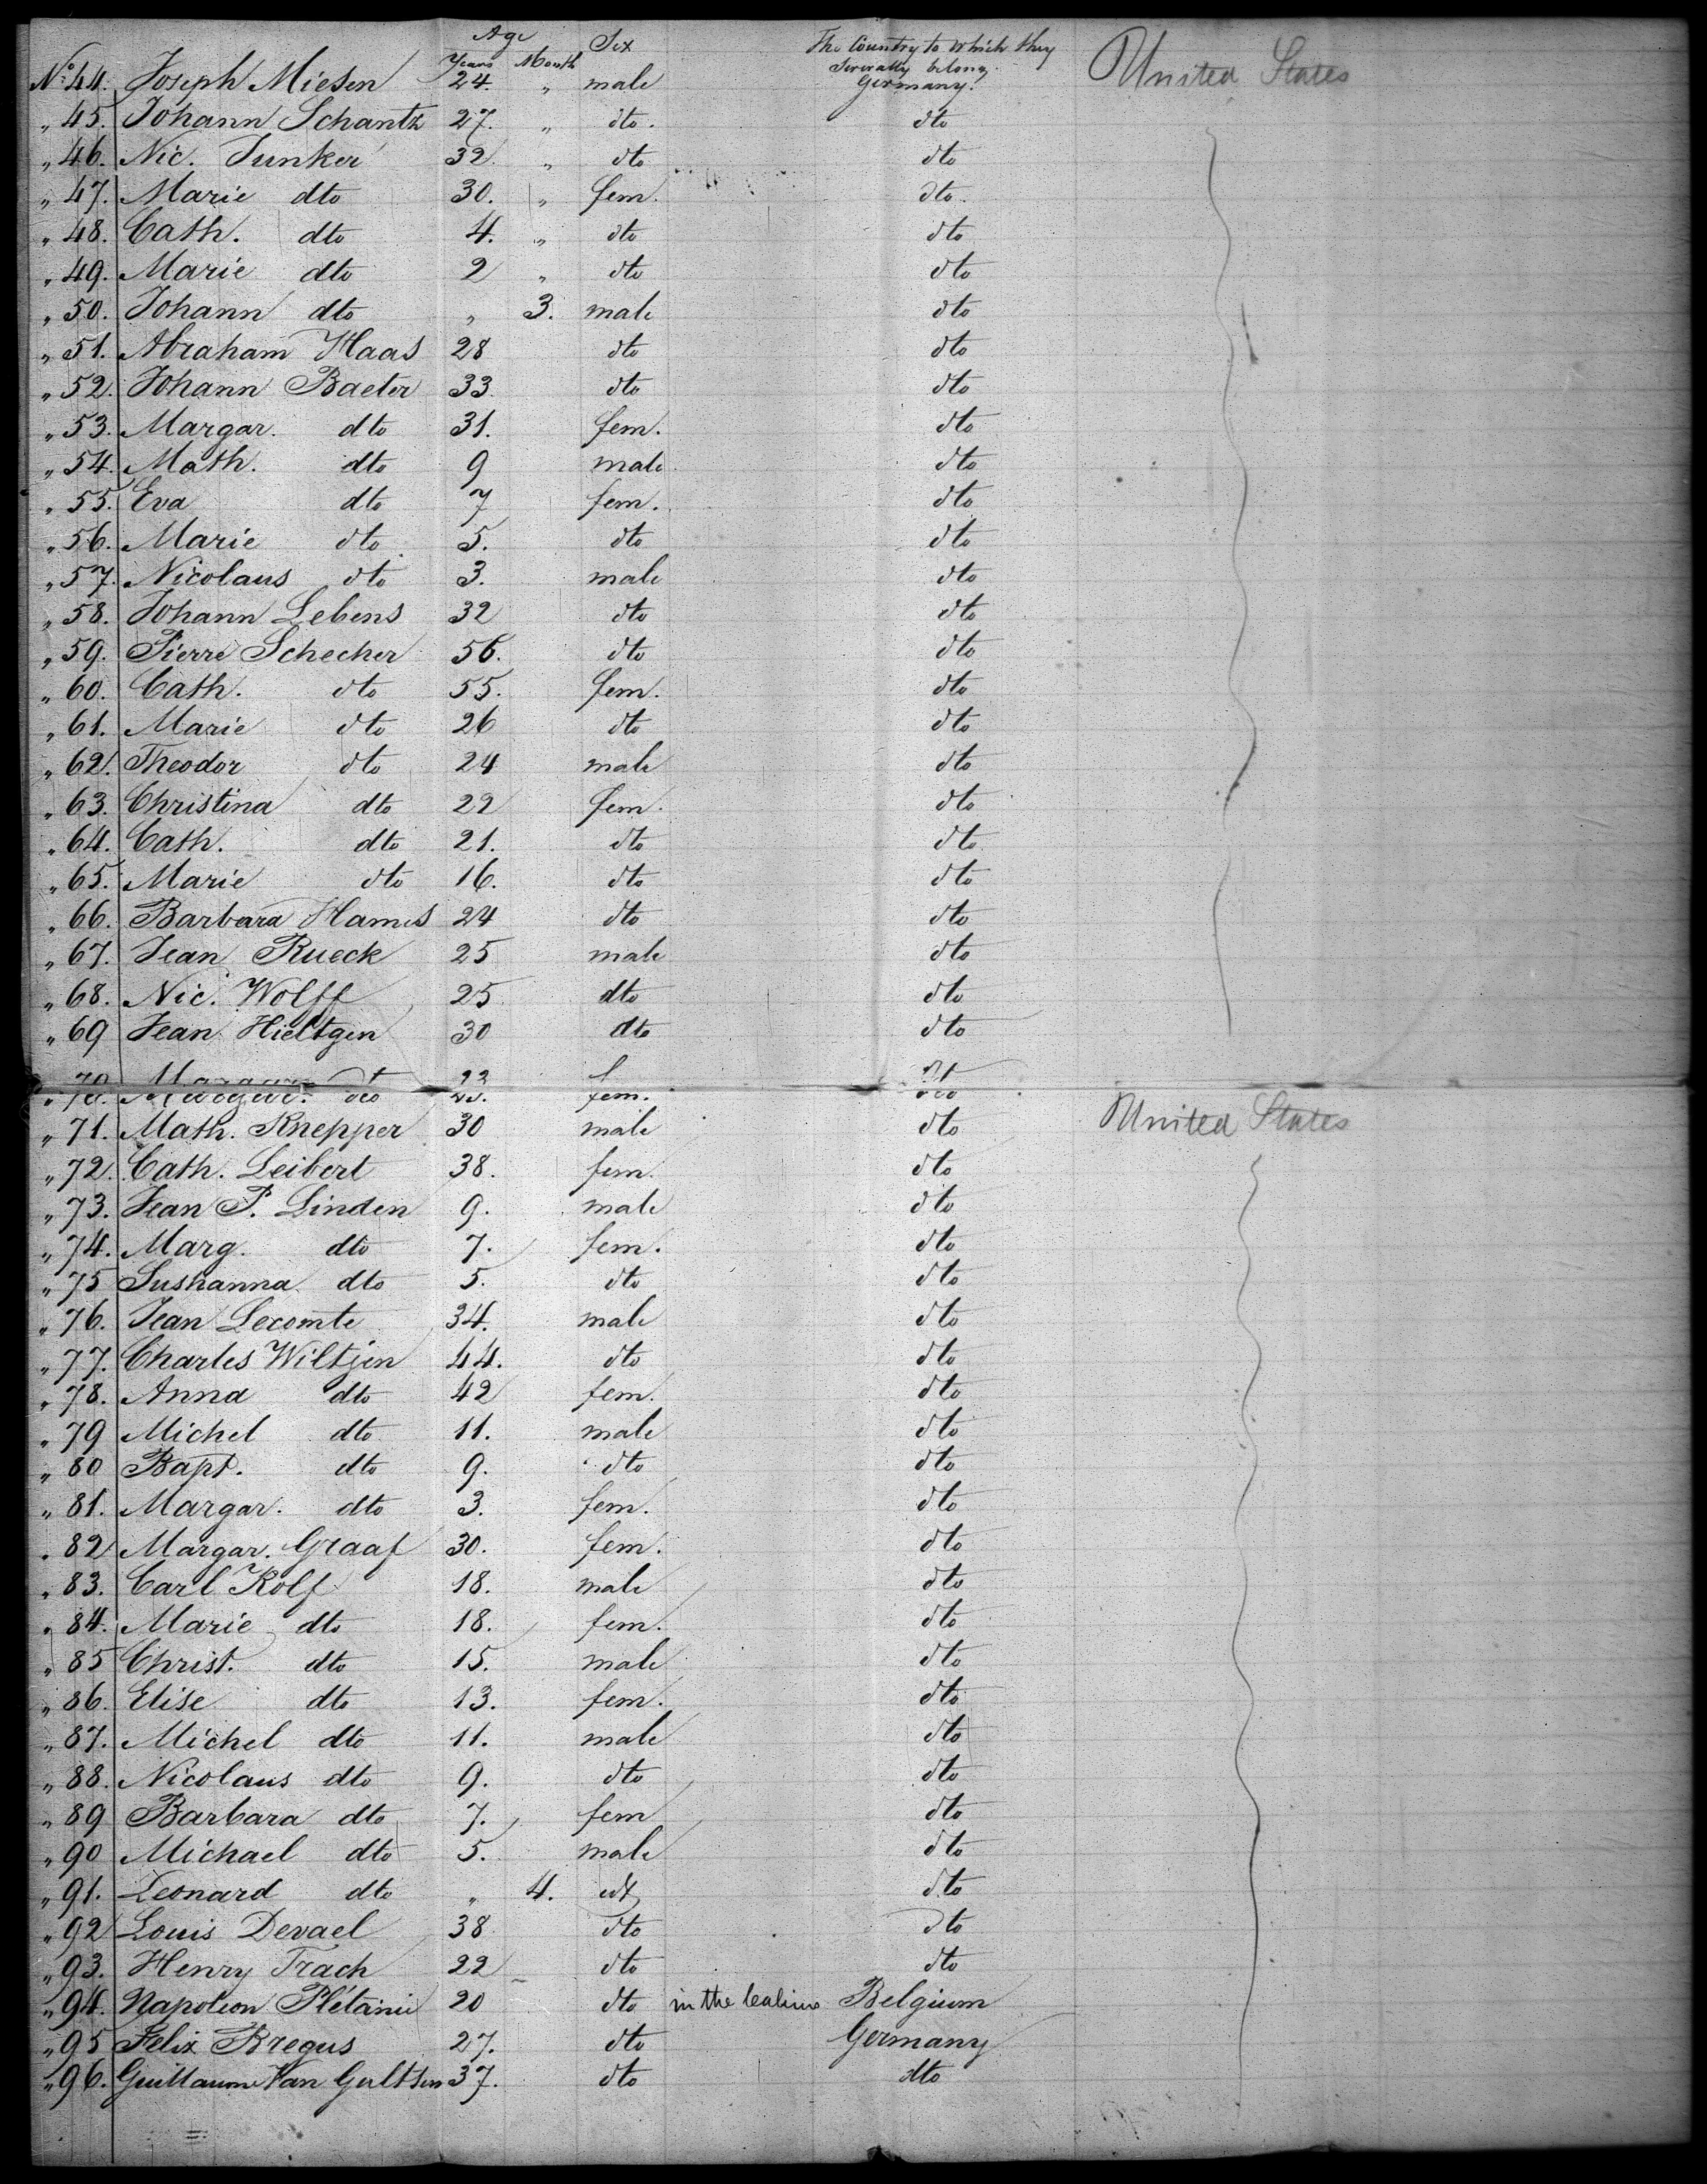 Age Sex The Country to which they United States
Years Month severally belong
No. 44. Joseph Miesen 24. „ male Germany.
„ 45. Johann Schantz 27. „ dto. dto
„ 46. Nic. Junker 32. „ dto dto
„ 47. Marie dto 30. „ fem. dto.
„ 48. Cath. dto 4. „ dto dto
„ 49. Marie dto 2 „ dto dto
„ 50. Johann dto „ 3. male dto
„ 51. Abraham Haas 28 dto dto
„ 52. Johann Baeter 33. dto dto
„ 53. Margar. dto 31. fem. dto
„ 54. Math. dto 9 male dto
„ 55. Eva dto 7 fem. dto
„ 56. Marie dto 5. dto dto
„ 57. Nicolaus dto 3. male dto
„ 58. Johann Lebens 32 dto dto
„ 59. Pierre Schecher 56. dto dto
„ 60. Cath. dto 55. fem. dto
„ 61. Marie dto 26 dto dto
„ 62. Theodor dto 24 male dto
„ 63. Christina dto 22 fem. dto
„ 64. Cath. dto 21. dto dto
„ 65. Marie dto 16. dto dto
„ 66. Barbara Hames 24 dto dto
„ 67. Jean Rueck 25 male dto
„ 68. Nic. Wolff 25 dto dto
„ 69 Jean Hieltgen 30 dto dto
„ 70. Margar. dto 23. fem. dto
„ 71. Math. Knepper 30 male dto United States
„ 72. Cath. Leibert 38. fem. dto
„ 73. Jean P. Linden 9. male dto
„ 74. Marg. dto 7. fem. dto
„ 75 Sushanna dto 5. dto dto
„ 76. Jean Lecomte 34. male dto
„ 77. Charles Wiltjen 44. dto dto
„ 78. Anna dto 42 fem. dto
„ 79 Michel dto 11. male dto
„ 80 Bapt. dto 9. dto dto
„ 81. Margar. dto 3. fem. dto
„ 82 Margar. Graaf 30. fem. dto
„ 83. Carl Kolf 18. male dto
„ 84. Marie dto 18. fem. dto
„ 85 Christ. dto 15. male dto
„ 86. Elise dto 13. fem. dto
„ 87. Michel dto 11. male dto
„ 88. Nicolaus dto 9. dto dto
„ 89 Barbara dto 7. fem dto
„ 90 Michael dto 5. male dto
„ 91. Leonard dto „ 4. dto
„ 92 Louis Devael 38 dto dto
„ 93. Henry Trach 22 dto dto
„ 94. Napoleon 20 dto in the Belgium
„ 95 Felix Bregus 27. dto Germany
„ 96. Guillaume Van Gultsen 37. dto dto